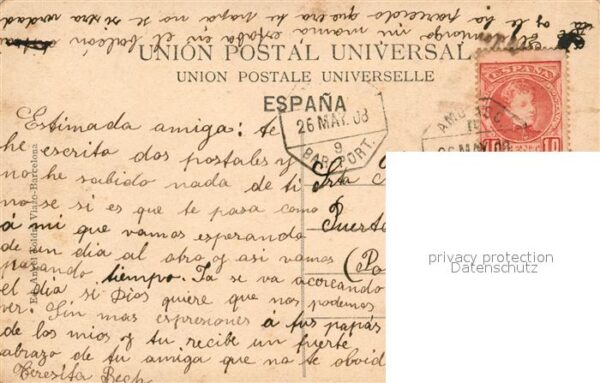 UNIÓN POSTAL UNIVERSAL
UNION POSTALE UNIVERSELLE
ESPAÑA
26 MAY. 08
9
BAR. PORT.
AMB
ESPAÑA
10
Estimada amiga: te
he escrito dos postales y
no he sabido nada de ti
no se si es que te pasa como
á mi que vamos esperando
de un dia al otro y asi vamos
pasando tiempo. Ya se va acercando
el dia, si Dios quiere que nos podemos
ver. Sin mas espresiones á tus papás
de los mios y tu recibe un fuerte
abrazo de tu amiga que no te olvid
Teresita Bech
Srta
Puerto
(Pa
mamá estaba en el balcón
le ha parecido que era tu papá no se si sera
verdad
Viazo-Barcelona
privacy protection
Datenschutz